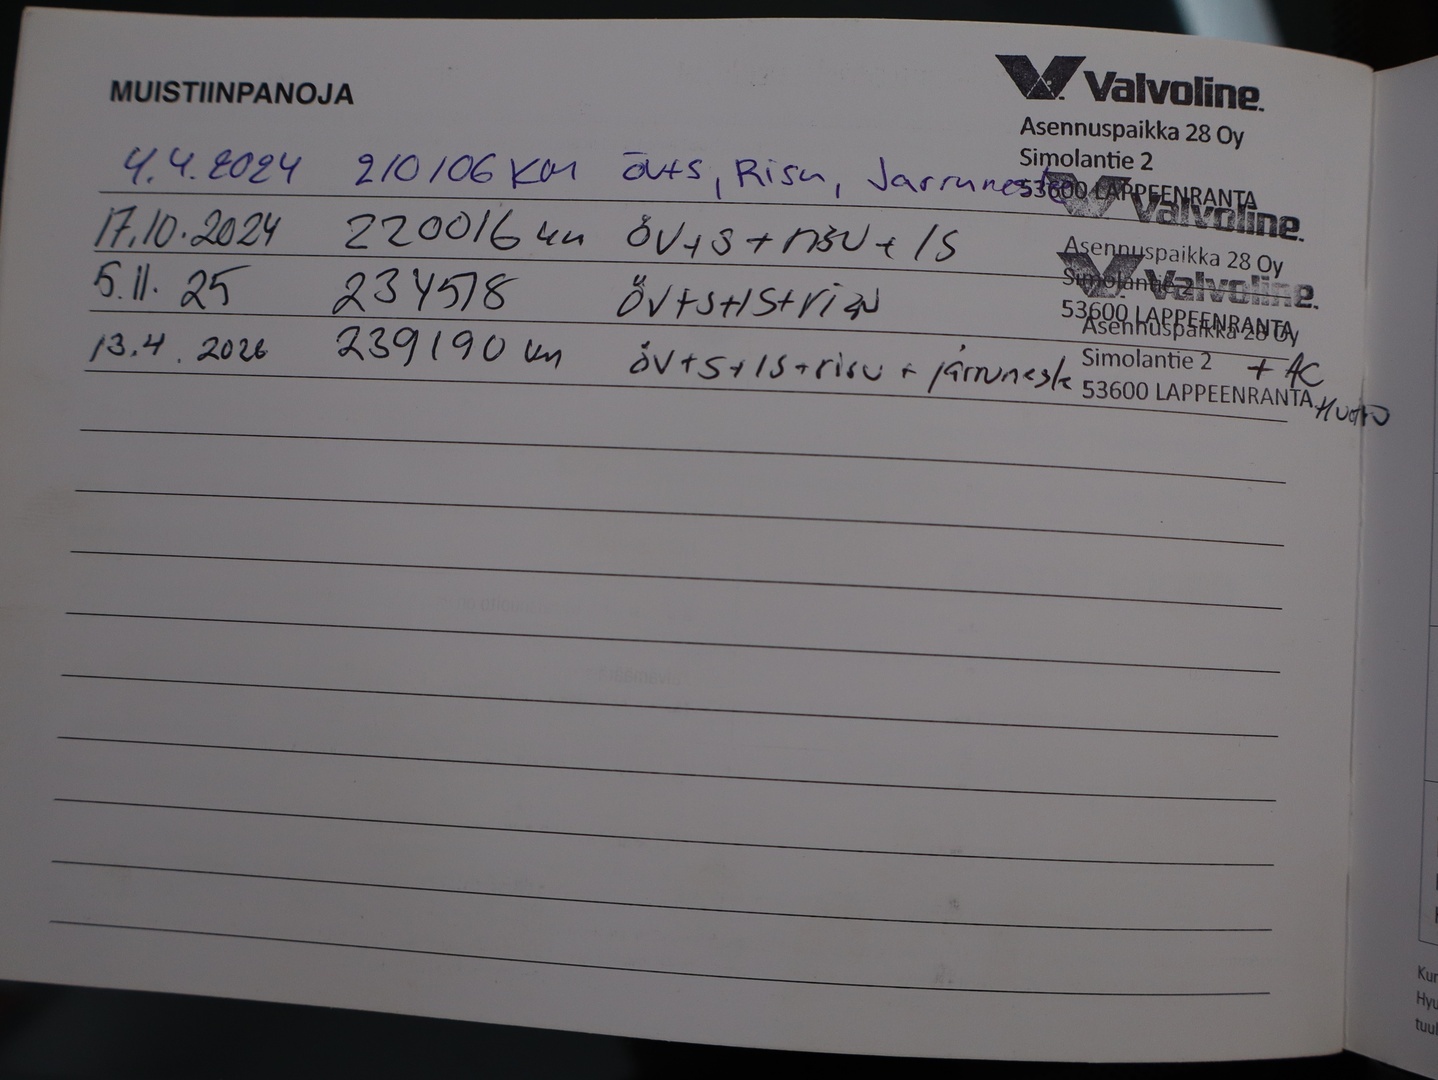 MUISTIINPANOJA
Valvoline.
Asennuspaikka 28 Oy
Simolantie 2
53600 LAPPEENRANTA
4.4.2024 210106 km öv+s, Risu, Jarruneste
Valvoline.
Asennuspaikka 28 Oy
Simolantie 2
53600 LAPPEENRANTA
17.10.2024 220016 km öv+s+risu+IS
Valvoline.
Asennuspaikka 28 Oy
Simolantie 2
53600 LAPPEENRANTA
5.11.25 234578 öv+s+IS+risu
13.4.2026 239190 km öv+s+IS+risu+jarruneste + AC
Huolto
Kun
Hyu
tuul